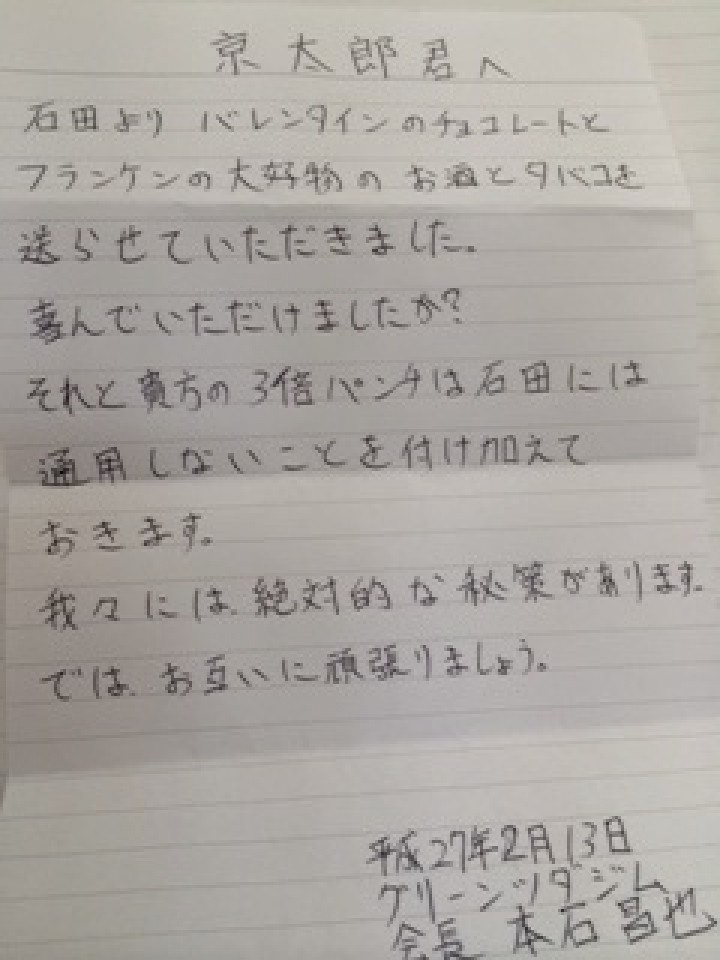 京太郎君へ
石田より バレンタインのチョコレートと
フランケンの大好物の お酒とタバコを
送らせていただきました。
喜んでいただけましたか?
それと貴方の3倍パンチは石田には
通用しないことを付け加えて
おきます。
我々には、絶対的な秘策があります。
では、お互いに頑張りましょう。
平成27年2月13日
グリーンツダジム
会長 本石昌也